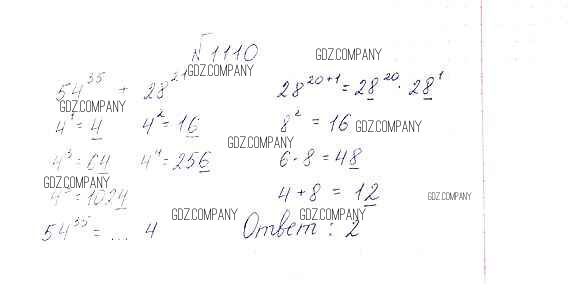 № 1110
GDZ.COMPANY
GDZ.COMPANY
54³⁵ + 28²¹
28²⁰⁺¹ = 28²⁰ · 28¹
GDZ.COMPANY
4¹ = 4 4² = 16
8² = 16 GDZ.COMPANY
GDZ.COMPANY
4³ = 64 4⁴ = 256
6 · 8 = 48
GDZ.COMPANY
4⁵ = 1024
4 + 8 = 12
GDZ.COMPANY
GDZ.COMPANY
GDZ.COMPANY
54³⁵ = ... 4
Ответ: 2